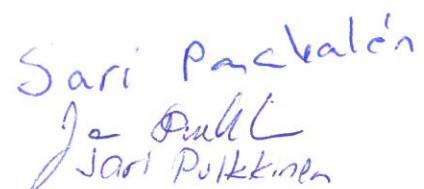 Sari Packalén
Jari Pulkkinen